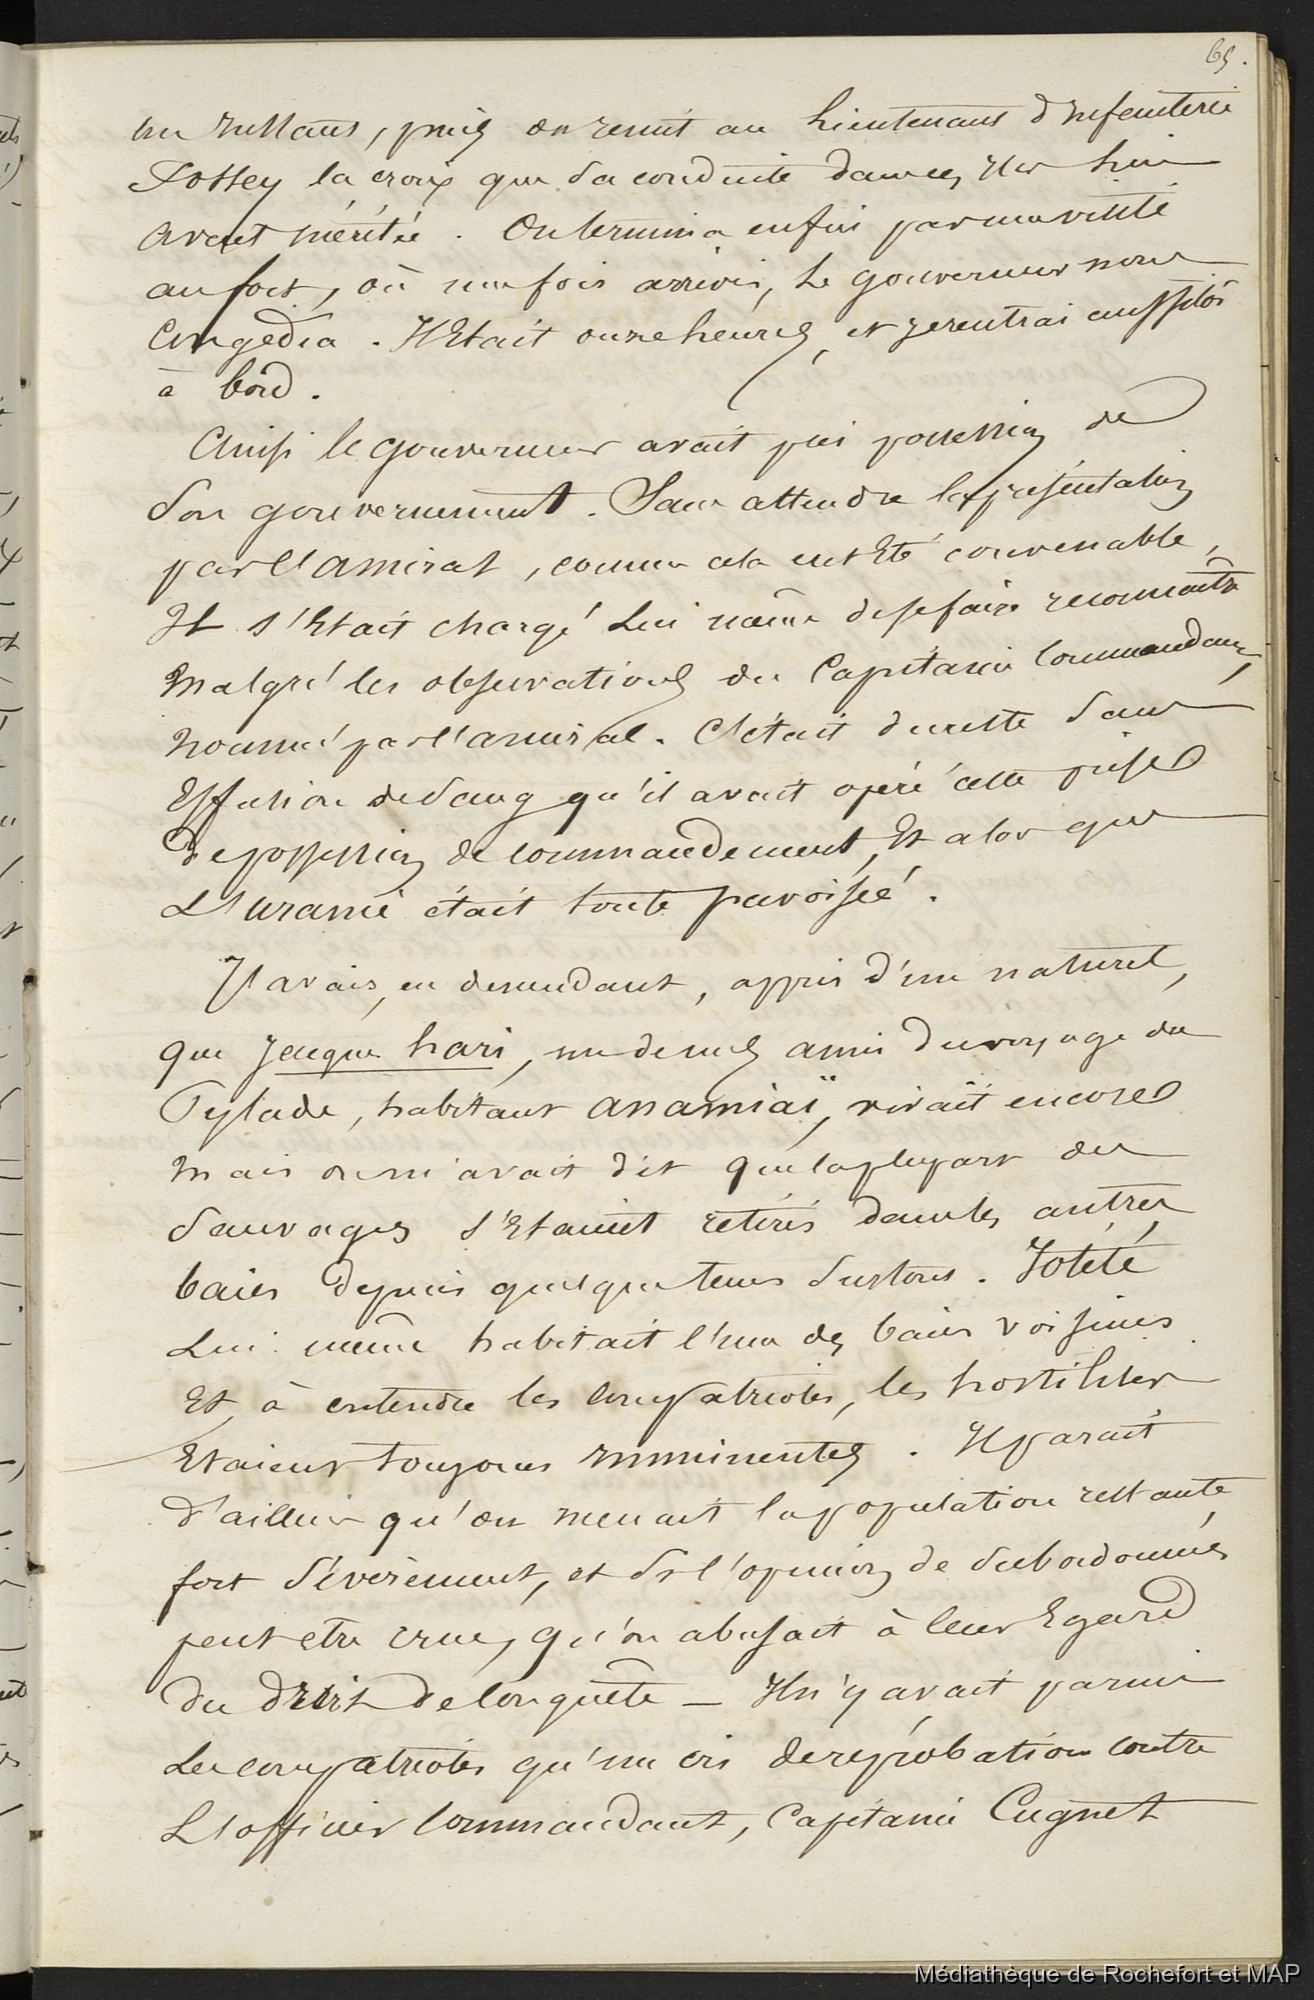 65.
un instant, puis on remit au Lieutenant d'infanterie
Fossey la croix que sa conduite dans les lui
avait méritée. On termina enfin par une visite
au fort, où une fois arrivés, le gouverneur nous
congédia. Il était onze heures, et je rentrai aussitôt
à bord.
Ainsi le gouverneur avait pris possession de
son gouvernement. Sans attendre la présentation
par l'amiral, comme cela eut été convenable,
Il s'était chargé lui même de se faire reconnaître
Malgré les observations du Capitaine Commandant,
nommé par l'amiral. C'était du reste sans
Effusion de sang qu'il avait opéré cette prise
de possession de commandement, Et alors que
L'uranie était toute pavoisée.
J'avais, en descendant, appris d'un naturel,
que Jacque hari, un de mes amis du voyage du
Pylade, habitant anamiaï, vivait encore
Mais on m'avait dit que la plupart des
Sauvages s'étaient retirés dans les autres
baies depuis quelque tems surtout. Iotété
Lui même habitait l'une des baies voisines
Et, à entendre les compatriotes, les hostilités
Etaient toujours imminentes. Il parait
d'ailleurs qu'on menait la population restante
fort sévèrement, et si l'opinion de subordonnés
peut etre crue, qu'on abusait à leur Egard
du droit de Conquête — Il n'y avait parmi
Les compatriotes qu'un cri de réprobation contre
L'officier Commandant, Capitaine Cugnet
Médiathèque de Rochefort et MAP